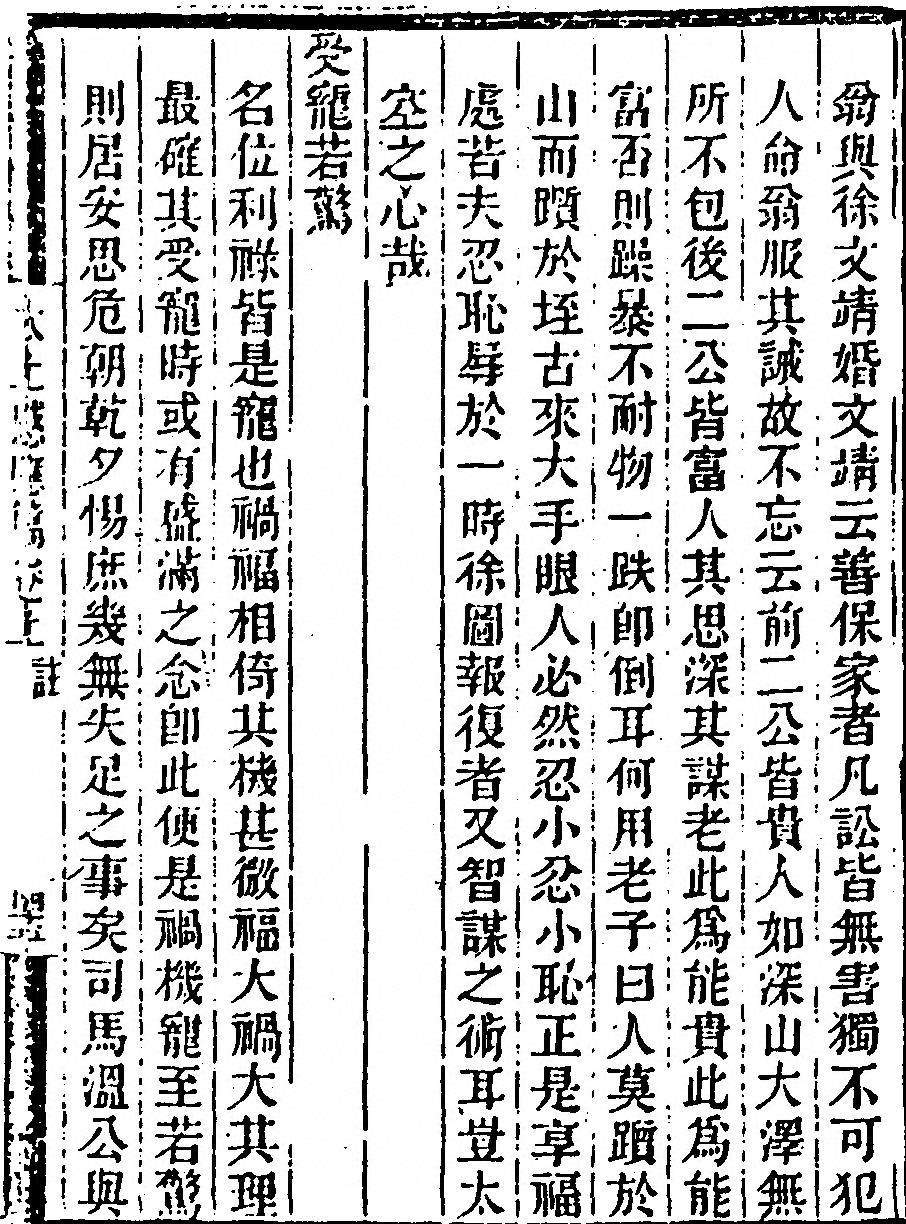 翁與徐文靖婚文靖云善保家者凡訟皆無害獨不可犯
人命翁服其誠故不忘云前二公皆貴人如深山大澤無
所不包後二公皆富人其思深其謀老此爲能貴此爲能
富否則躁暴不耐物一跌卽倒耳何用老子曰人莫躓於
山而躓於垤古來大手眼人必然忍小忿小恥正是享福
處若夫忍恥辱於一時徐圖報復者又智謀之術耳豈太
空之心哉
受寵若驚
名位利祿皆是寵也禍福相倚其機甚微福大禍大其理
最確其受寵時或有盛滿之念卽此便是禍機寵至若驚
則居安思危朝乾夕惕庶幾無失足之事矣司馬溫公與
太上感應篇卷上
註